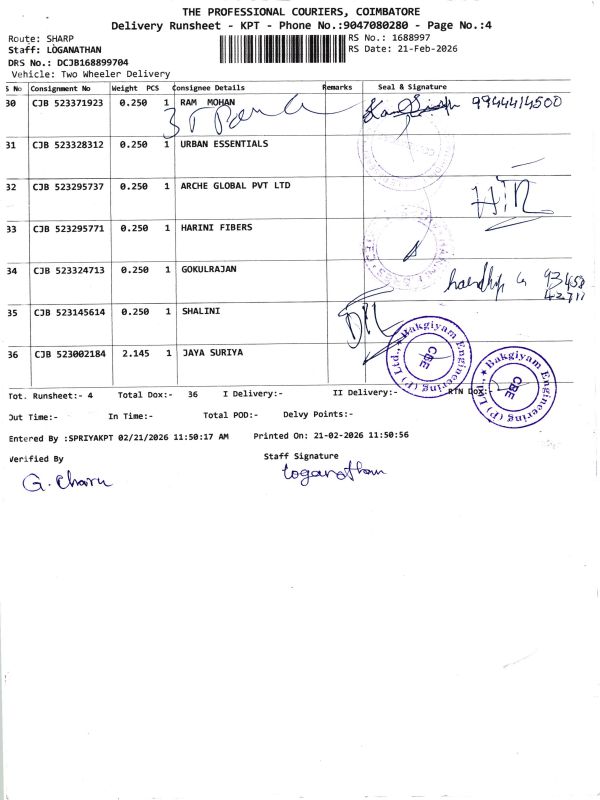 THE PROFESSIONAL COURIERS, COIMBATORE
Delivery Runsheet - KPT - Phone No.:9047080280 - Page No.:4
Route: SHARP
RS No.: 1688997
Staff: LOGANATHAN
RS Date: 21-Feb-2026
DRS No.: DCJB168899704
Vehicle: Two Wheeler Delivery
S No Consignment No Weight PCS Consignee Details Remarks Seal & Signature
30 CJB 523371923 0.250 1 RAM MOHAN 9944414500
31 CJB 523328312 0.250 1 URBAN ESSENTIALS
32 CJB 523295737 0.250 1 ARCHE GLOBAL PVT LTD
33 CJB 523295771 0.250 1 HARINI FIBERS
34 CJB 523324713 0.250 1 GOKULRAJAN 93458
42711
35 CJB 523145614 0.250 1 SHALINI
36 CJB 523002184 2.145 1 JAYA SURIYA
Bakgiyam Engineering (P) Ltd., ★ CBE
Bakgiyam Engineering (P) Ltd., ★ CBE
Tot. Runsheet:- 4 Total Dox:- 36 I Delivery:- II Delivery:- RTN Dox:-
Out Time:- In Time:- Total POD:- Delvy Points:-
Entered By :SPRIYAKPT 02/21/2026 11:50:17 AM Printed On: 21-02-2026 11:50:56
Verified By Staff Signature
G. Charu Loganathan